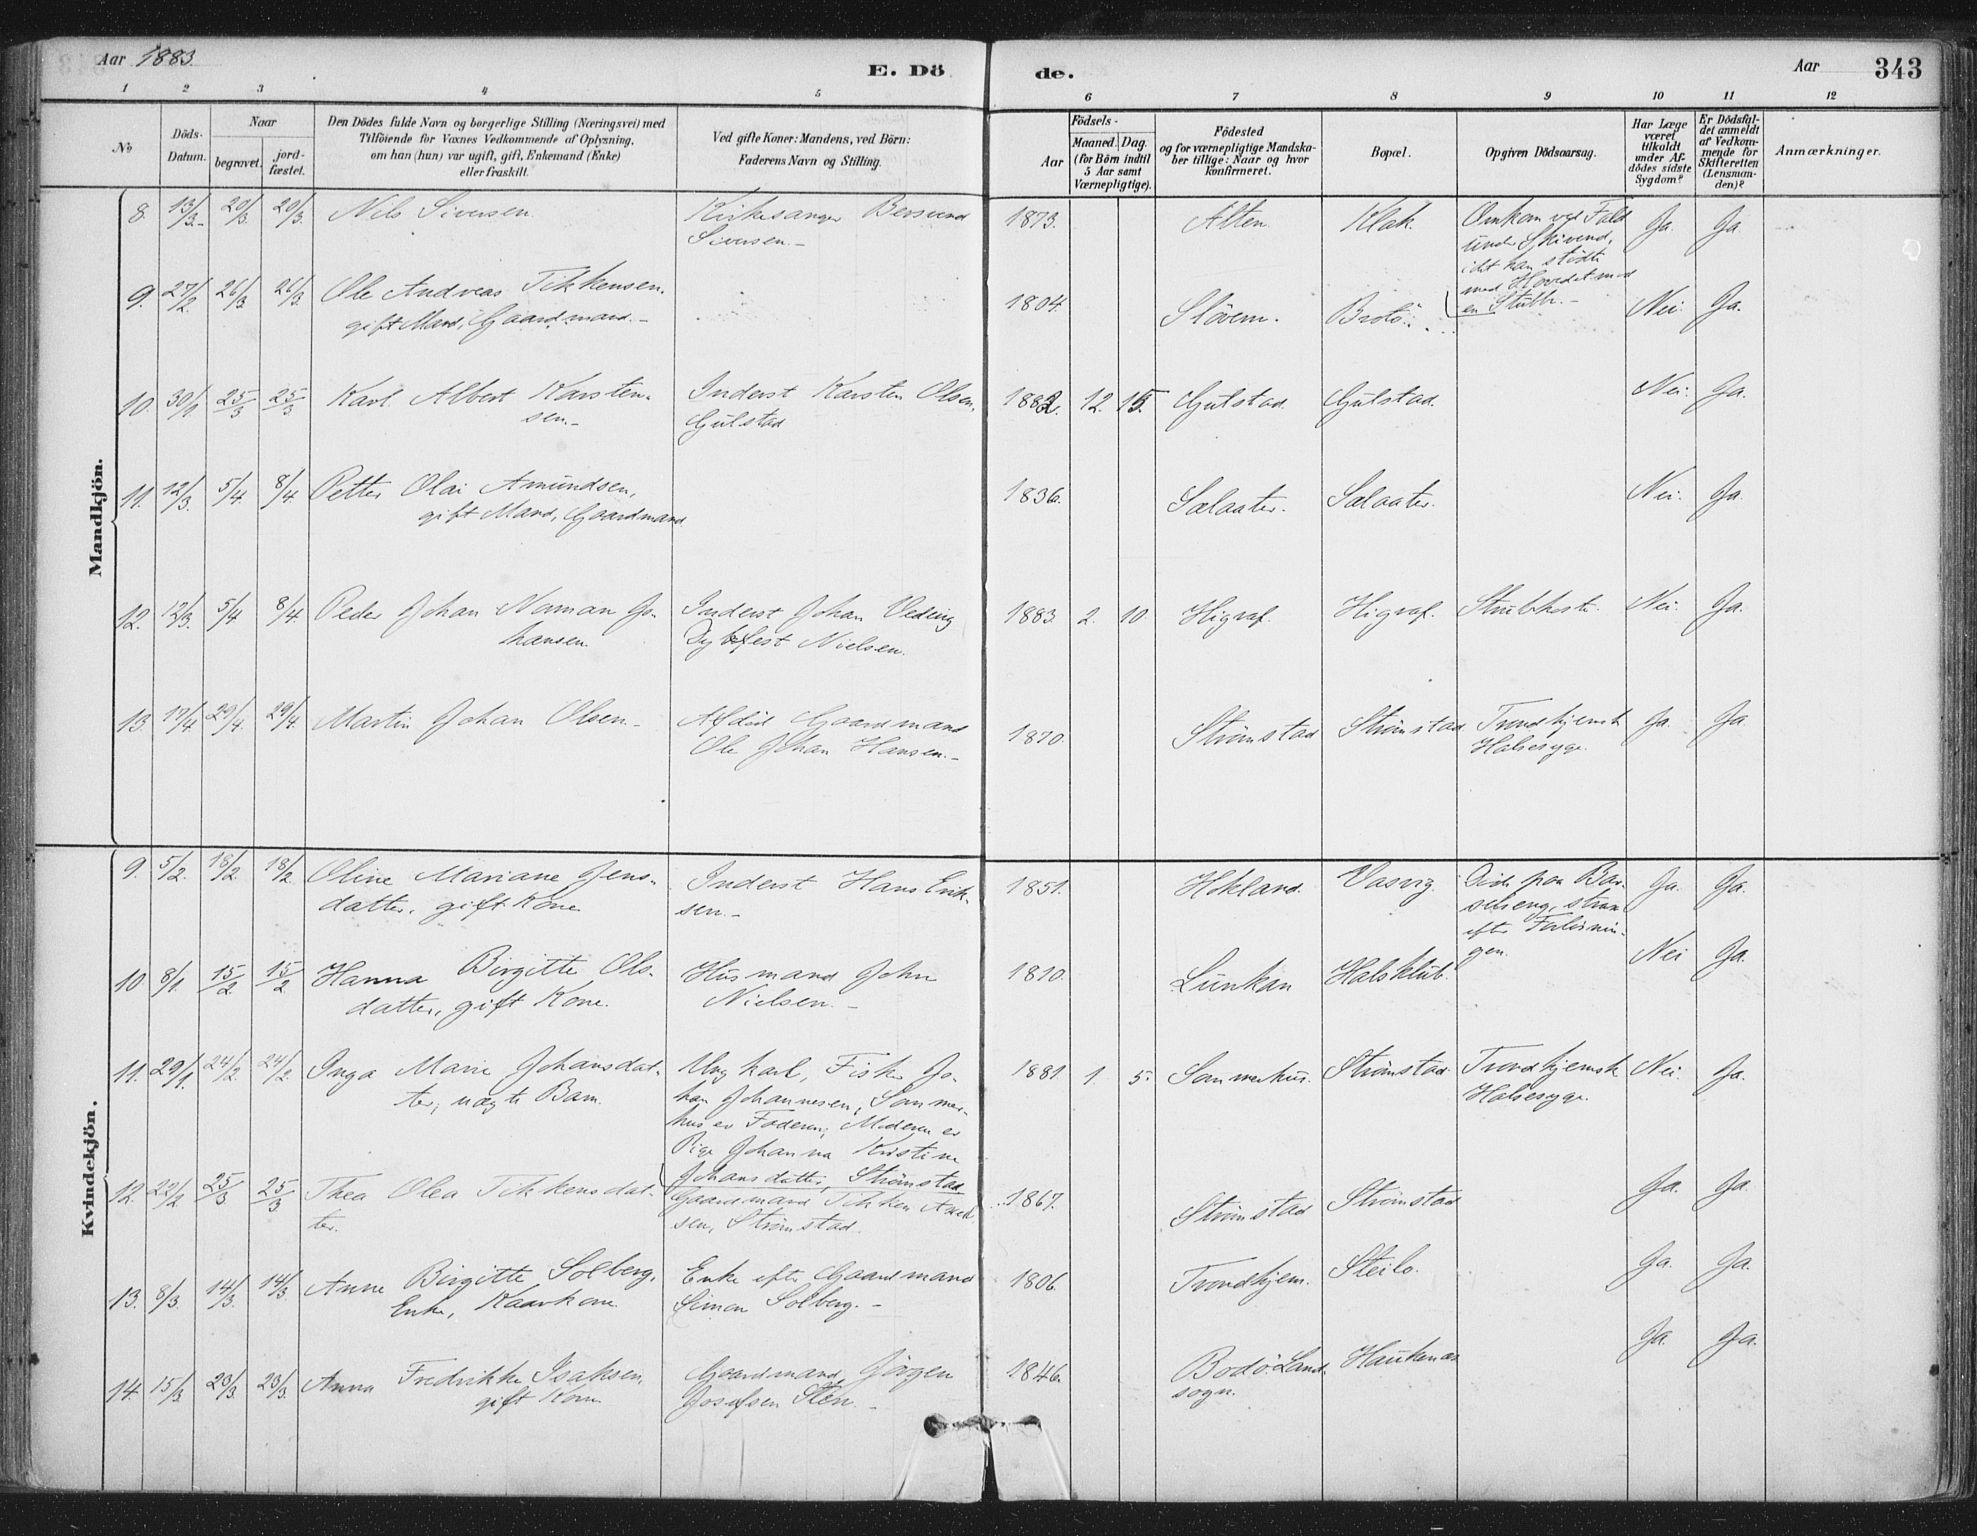 Aar 1883.
E. Dö
de.
Aar
343
1 2 3 4 5 6 7 8 9 10 11 12
No
Döds-
Datum.
Naar
begravet.
jord-
fæstet.
Den Dödes fulde Navn og borgerlige Stilling (Næringsvei) med
Tilföiende for Voxnes Vedkommende af Oplysning,
om han (hun) var ugift, gift, Enkemand (Enke)
eller fraskilt.
Ved gifte Koner: Mandens, ved Börn:
Faderens Navn og Stilling.
Födsels-
Aar
Maaned. Dag.
(for Börn indtil
5 Aar samt
Værnepligtige).
Födested
og for værnepligtige Mandska-
ber tillige: Naar og hvor
konfirmeret.
Bopæl.
Opgiven Dödsaarsag.
Har Læge
været
tilkaldt
under Af-
dödes sidste
Sygdom?
Er Dödsfal-
det anmeldt
af Vedkom-
mende for
Skifteretten
(Lensman-
den)?
Anmærkninger.
Mandkjön.
8. 13/3. 20/3. 20/3. Nils Siversen. Kirkesanger Bersvend
Siversen.- 1873. Alten. Klak. Omkom ved Fald
under Skirend,
idet han stødte
med Hovedet mod
en Stubb.- Ja. Ja.
9. 27/2 26/3 26/3. Ole Andreas Tikkensen.
gift Mand, Gaardmand.- 1804. Sløvern. Brotö. Nei. Ja.
10. 30/1. 25/3 25/3 Karl Albert Karsten-
sen.- Inderst Karsten Olsen,
Gulstad 1882. 12. 15. Gulstad. Gulstad. Nei. Ja.
11. 12/3. 5/4. 8/4. Petter Olai Amundsen,
gift Mand, Gaardmand 1836. Salaater. Salaater. Nei. Ja.
12. 12/3. 5/4 8/4. Peder Johan Norman Jo-
hansen. Inderst Johan Veding
Dybfest Nielsen. 1883. 2. 10. Higraf. Higraf. Strubhoste. Nei. Ja.
13. 17/4 29/4. 29/4. Martin Johan Olsen.- Afdöd Gaardmand
Ole Johan Hansen.- 1870. Strömstad Strömstad Trondhjemsk
Halsesyge. Ja. Ja
Kvindekjön.
9. 5/2. 18/2 18/2. Oline Mariane Jens-
datter, gift Kone Inderst Hans Erik-
sen.- 1851. Hokland. Vasvig. Död paa Bar-
selseng, strax
efter Forløsnin-
gen. Ja. Ja.
10. 8/1. 15/2 15/2 Hanna Birgitte Ols-
datter, gift Kone. Husmand John
Nielsen.- 1810. Lunkan Halsklub. Nei Ja.
11. 29/1. 24/2. 24/2 Inga Marie Johansdat-
ter, uægte Barn. Ungkarl, Fisker Jo-
han Johannesen, Sommer-
hus er Faderen; Moderen er
Pige Johanna Kristine
Johansdatter, Strömstad 1881. 1. 5. Sommerhus. Strömstad. Trondhjemsk
Halsesyge. Nei. Ja.
12. 22/2 25/3 25/3 Thea Olea Tikkensdat-
ter. Gaardmand Tikken Axel-
sen, Strömstad. 1867. Strömstad Strömstad Ja. Ja.
13. 8/3. 14/3. 14/3. Anne Birgitte Solberg,
Enke, Kaarkone. Enke efter Gaardmand
Simon Solberg.- 1806. Trondhjem. Steilo. Ja. Ja.
14. 15/3. 20/3. 20/3. Anna Fredrikke Isaksen,
gift Kone Gaardmand Jörgen
Josefsen Sten.- 1846. Bodö Land-
sogn. Haukenæs Ja. Ja.